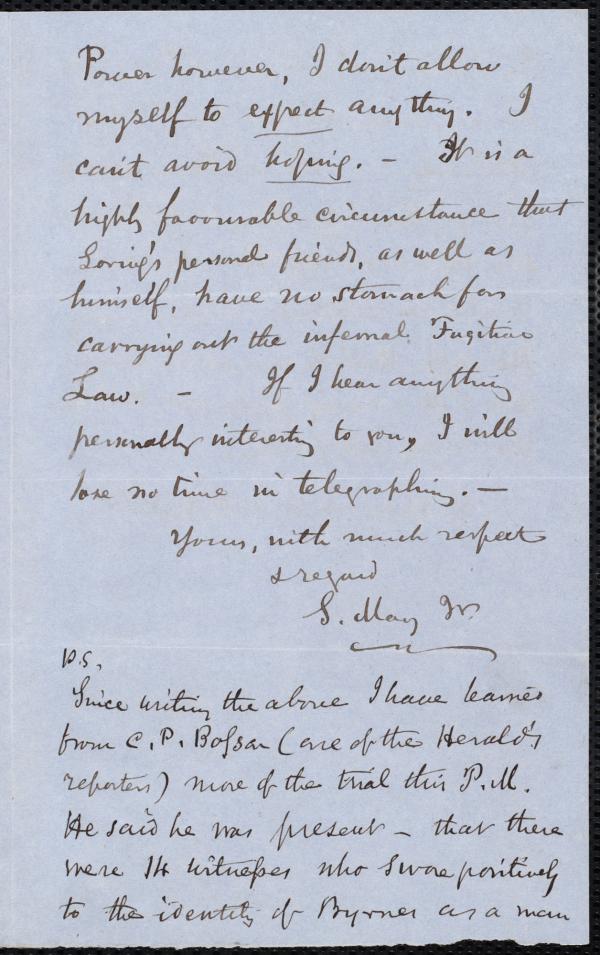 Power however, I don't allow
myself to expect anything. I
can't avoid hoping. – It is a
highly favourable circumstance that
Loring's personal friends, as well as
himself, have no stomach for
carrying out the infernal Fugitive
Law. – If I hear anything
personally interesting to you, I will
lose no time in telegraphing. –
Yours, with much respect
& regard
S. May Jr.
P.S.
Since writing the above I have learned
from C. P. Bossan (one of the Herald's
reporters) more of the trial this P.M.
He said he was present – that there
were 14 witnesses who swore positively
to the identity of Byrnes as a man